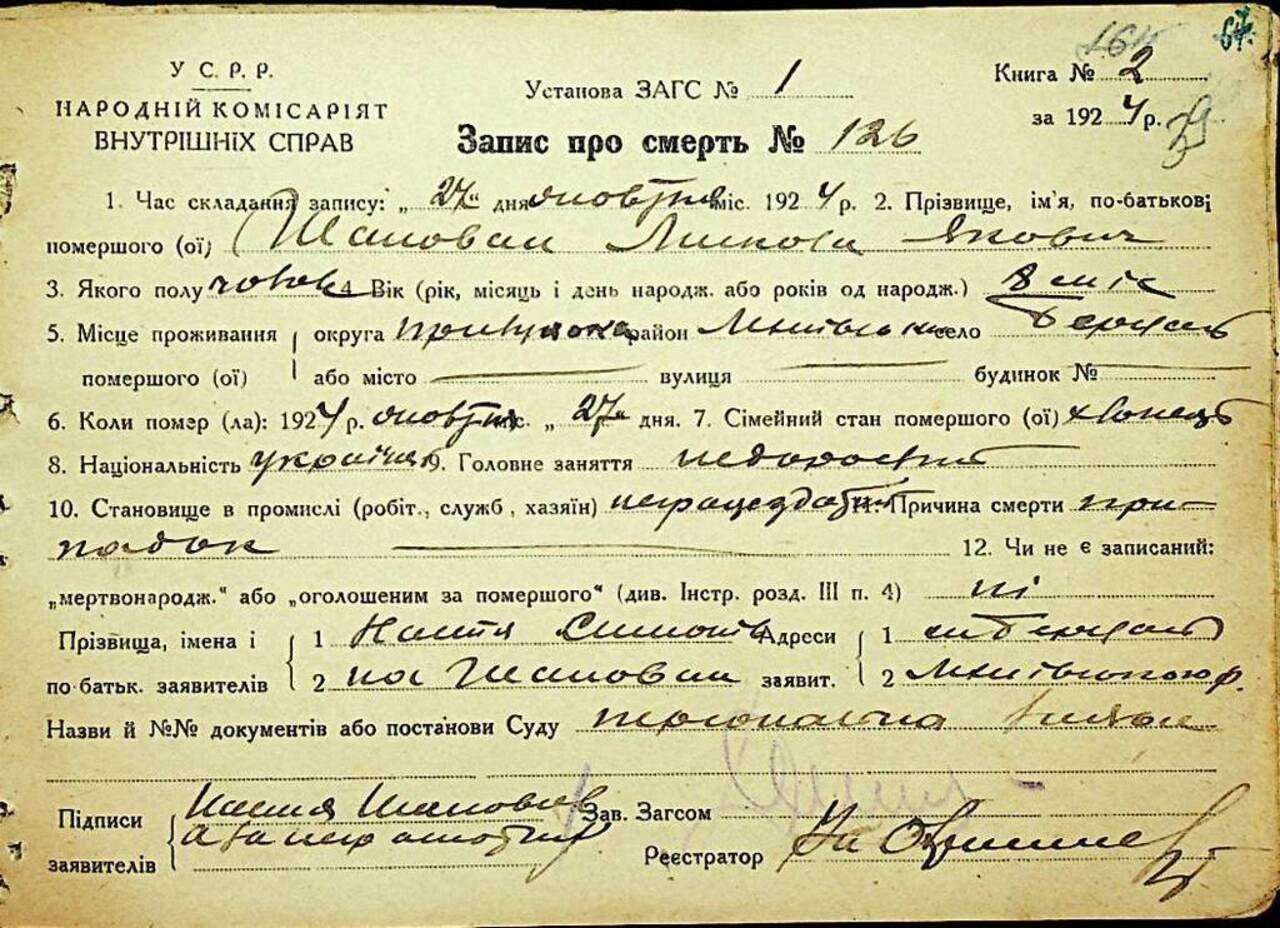 64.
У С. Р. Р.
НАРОДНІЙ КОМІСАРІЯТ
ВНУТРІШНІХ СПРАВ
Установа ЗАГС № 1
Книга № 2
за 1924 р.
39
Запис про смерть № 126
1. Час складання запису: „ 27 “ дня жовтня міс. 1924 р. 2. Прізвище, ім'я, по-батькові
помершого (ої) Шаповал Микола Якович
3. Якого полу чолов 4. Вік (рік, місяць і день народж. або років од народж.) 8 міс
5. Місце проживання округа Прилуцька район село
помершого (ої) або місто вулиця будинок №
6. Коли помер (ла): 1924 р. жовтня міс. „ 27 “ дня. 7. Сімейний стан помершого (ої) хлопець
8. Національність україн. 9. Головне заняття недорослий
10. Становище в промислі (робіт., служб , хазяїн) непрацездатний 11. Причина смерти при-
падок 12. Чи не є записаний:
„мертвонародж.“ або „оголошеним за помершого“ (див. Інстр. розд. III п. 4) ні
Прізвища, імена і 1 Настя Адреси 1
по батьк. заявителів 2 на Шаповал заявит. 2
Назви й №№ документів або постанови Суду персональна заява
Підписи Настя Зав. Загсом
заявителів Реєстратор